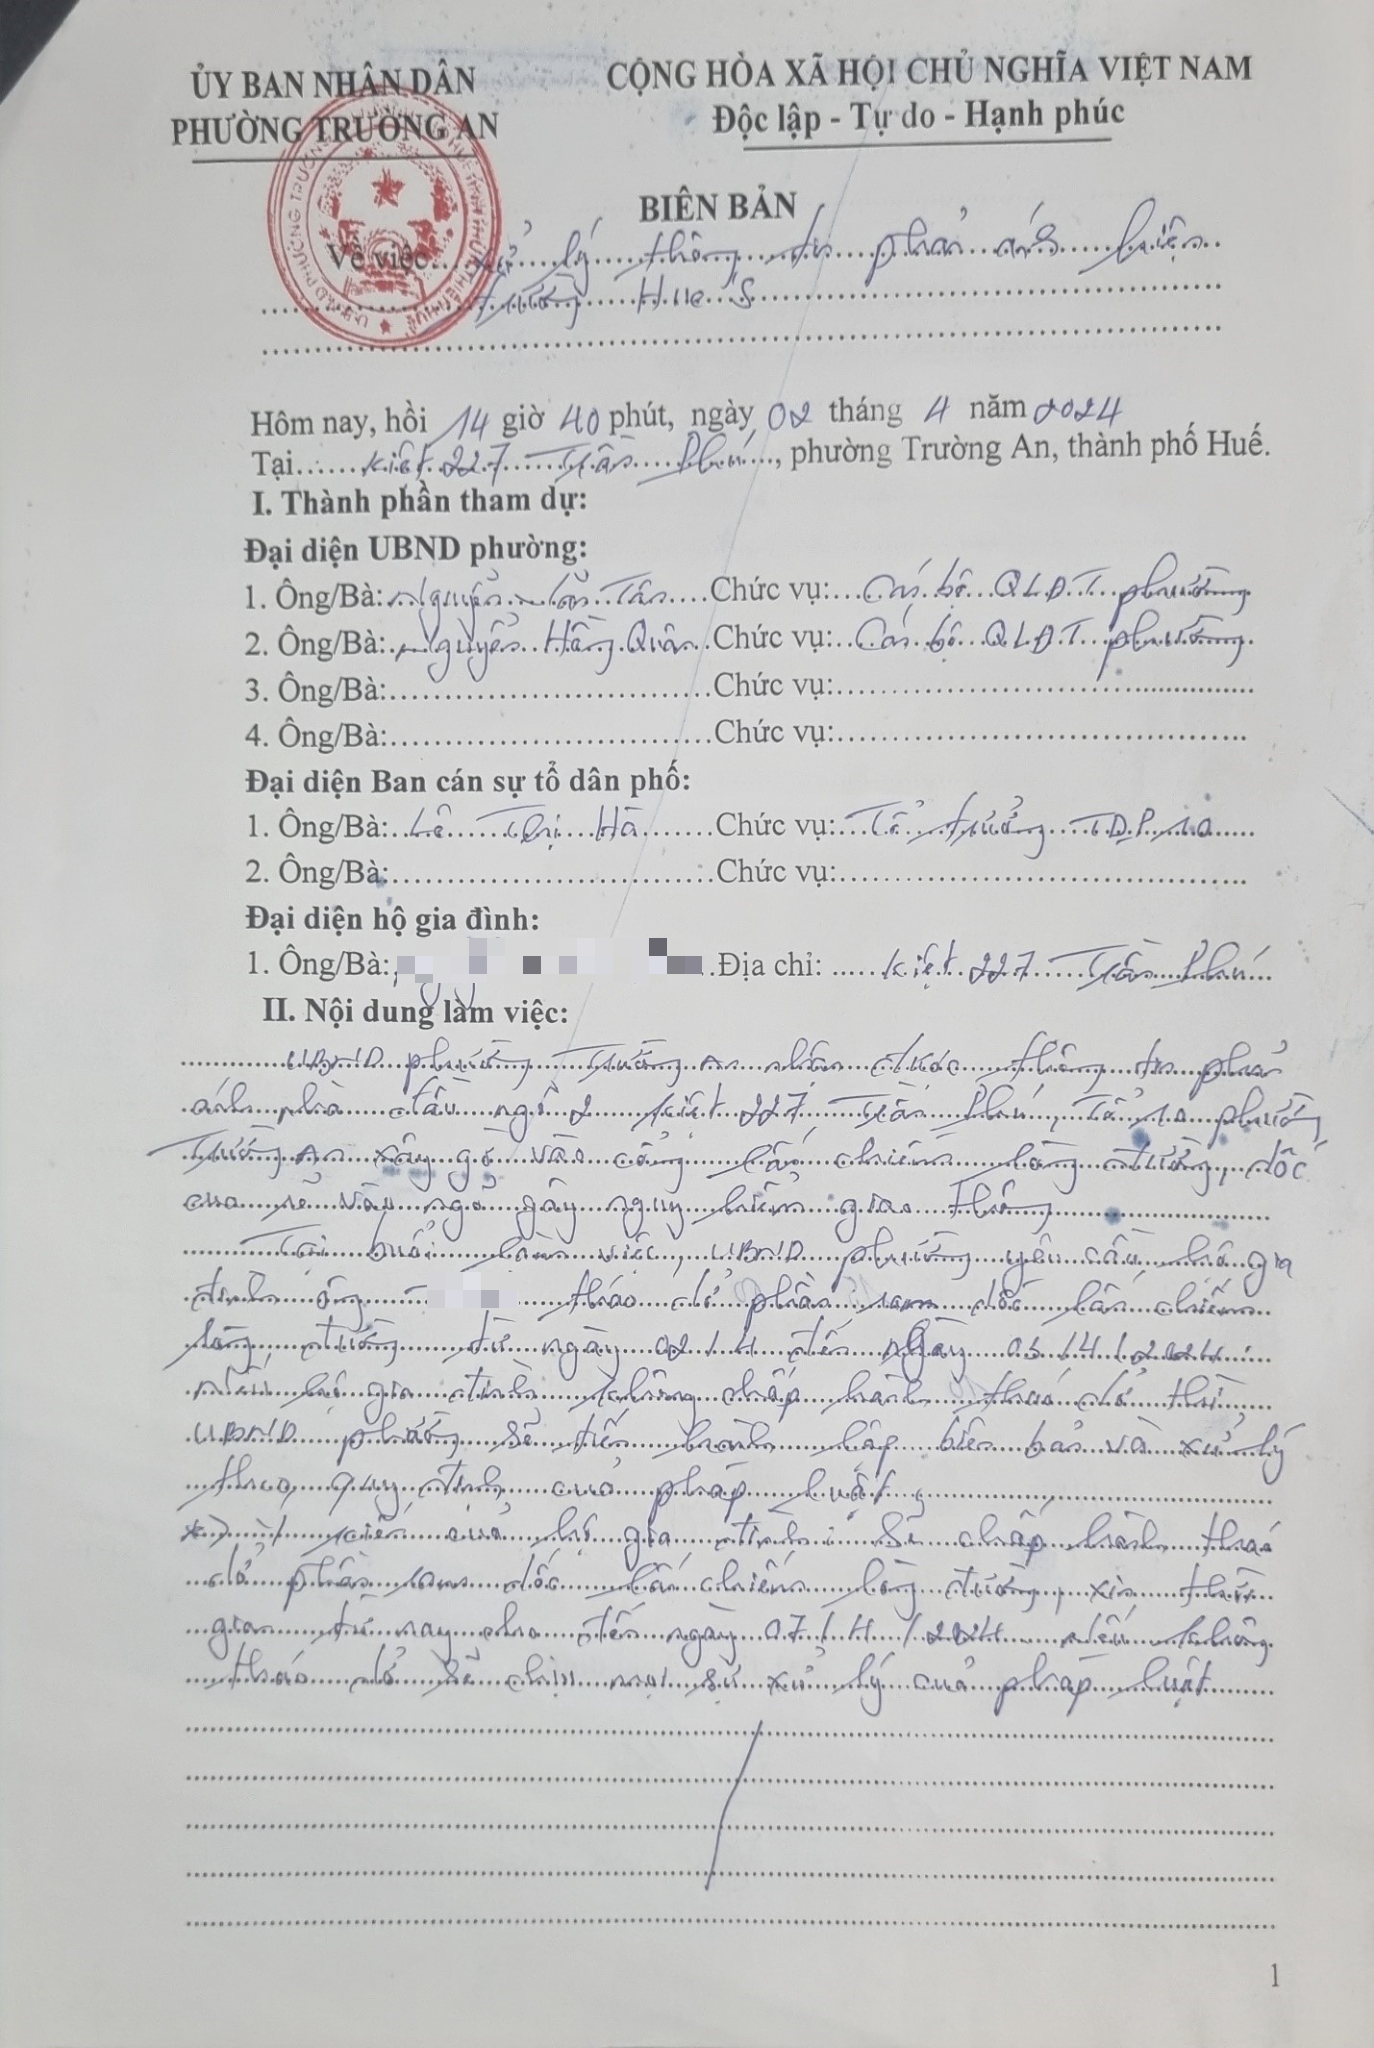 ỦY BAN NHÂN DÂN
PHƯỜNG TRƯỜNG AN
CỘNG HÒA XÃ HỘI CHỦ NGHĨA VIỆT NAM
Độc lập - Tự do - Hạnh phúc
BIÊN BẢN
Về việc: xử lý thông tin phản ánh hiện
trường Hue S
Hôm nay, hồi 14 giờ 40 phút, ngày 02 tháng 4 năm 2024
Tại kiệt 227 Trần Phú, phường Trường An, thành phố Huế.
I. Thành phần tham dự:
Đại diện UBND phường:
1. Ông/Bà: Nguyễn Tân Chức vụ: Cán bộ QLĐT phường
2. Ông/Bà: Nguyễn Hồng Quân Chức vụ: Cán bộ QLĐT phường
3. Ông/Bà: Chức vụ:
4. Ông/Bà: Chức vụ:
Đại diện Ban cán sự tổ dân phố:
1. Ông/Bà: Lê Thị Hà Chức vụ: Tổ trưởng TDP 10
2. Ông/Bà: Chức vụ:
Đại diện hộ gia đình:
1. Ông/Bà: Địa chỉ: kiệt 227 Trần Phú
II. Nội dung làm việc:
UBND phường Trường An nhận được thông tin phản
ánh nhà đầu ngõ 2 kiệt 227 Trần Phú, Tổ 10 phường
Trường An xây gờ vào cổng lấn chiếm lòng đường, dốc
cua rẽ vào ngõ gây nguy hiểm giao thông
Tại buổi làm việc, UBND phường yêu cầu hộ gia
đình ông tháo dỡ phần ram dốc lấn chiếm
lòng đường từ ngày 02/4 đến ngày 03/4/2024.
nếu hộ gia đình không chấp hành tháo dỡ thì
UBND phường sẽ tiến hành lập biên bản và xử lý
theo quy định của pháp luật.
*) Ý kiến của hộ gia đình: Sẽ chấp hành tháo
dỡ phần ram dốc lấn chiếm lòng đường, xin thời
gian từ nay cho đến ngày 07/4/2024 nếu không
tháo dỡ sẽ chịu mọi sự xử lý của pháp luật
1